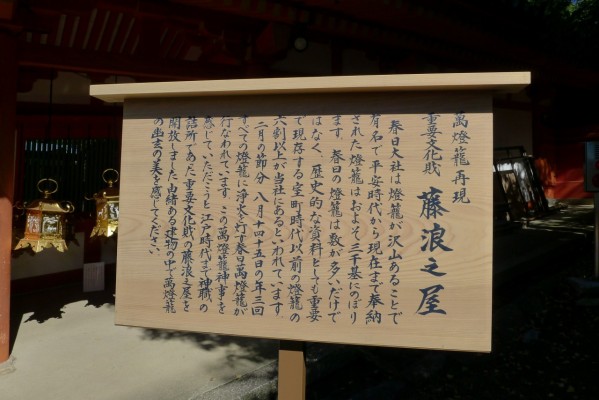 萬燈籠再現
重要文化財 藤浪之屋
春日大社は燈籠が沢山あることで
有名で平安時代から現在まで奉納
された燈籠はおよそ三千基にのぼり
ます。春日の燈籠は数が多いだけで
はなく、歴史的な資料としても重要
で現存する室町時代以前の燈籠の
六割以上が当社にあるといわれています。
二月の節分 八月十四十五日の年三回
すべての燈籠に浄火を灯す春日萬燈籠が
行なわれています。この萬燈籠神事を
感じていただこうと江戸時代まで神職の
詰所であった重要文化財の藤浪之屋を
開放しました。由緒ある建物の中で萬燈籠
の幽玄の美を感じてください。